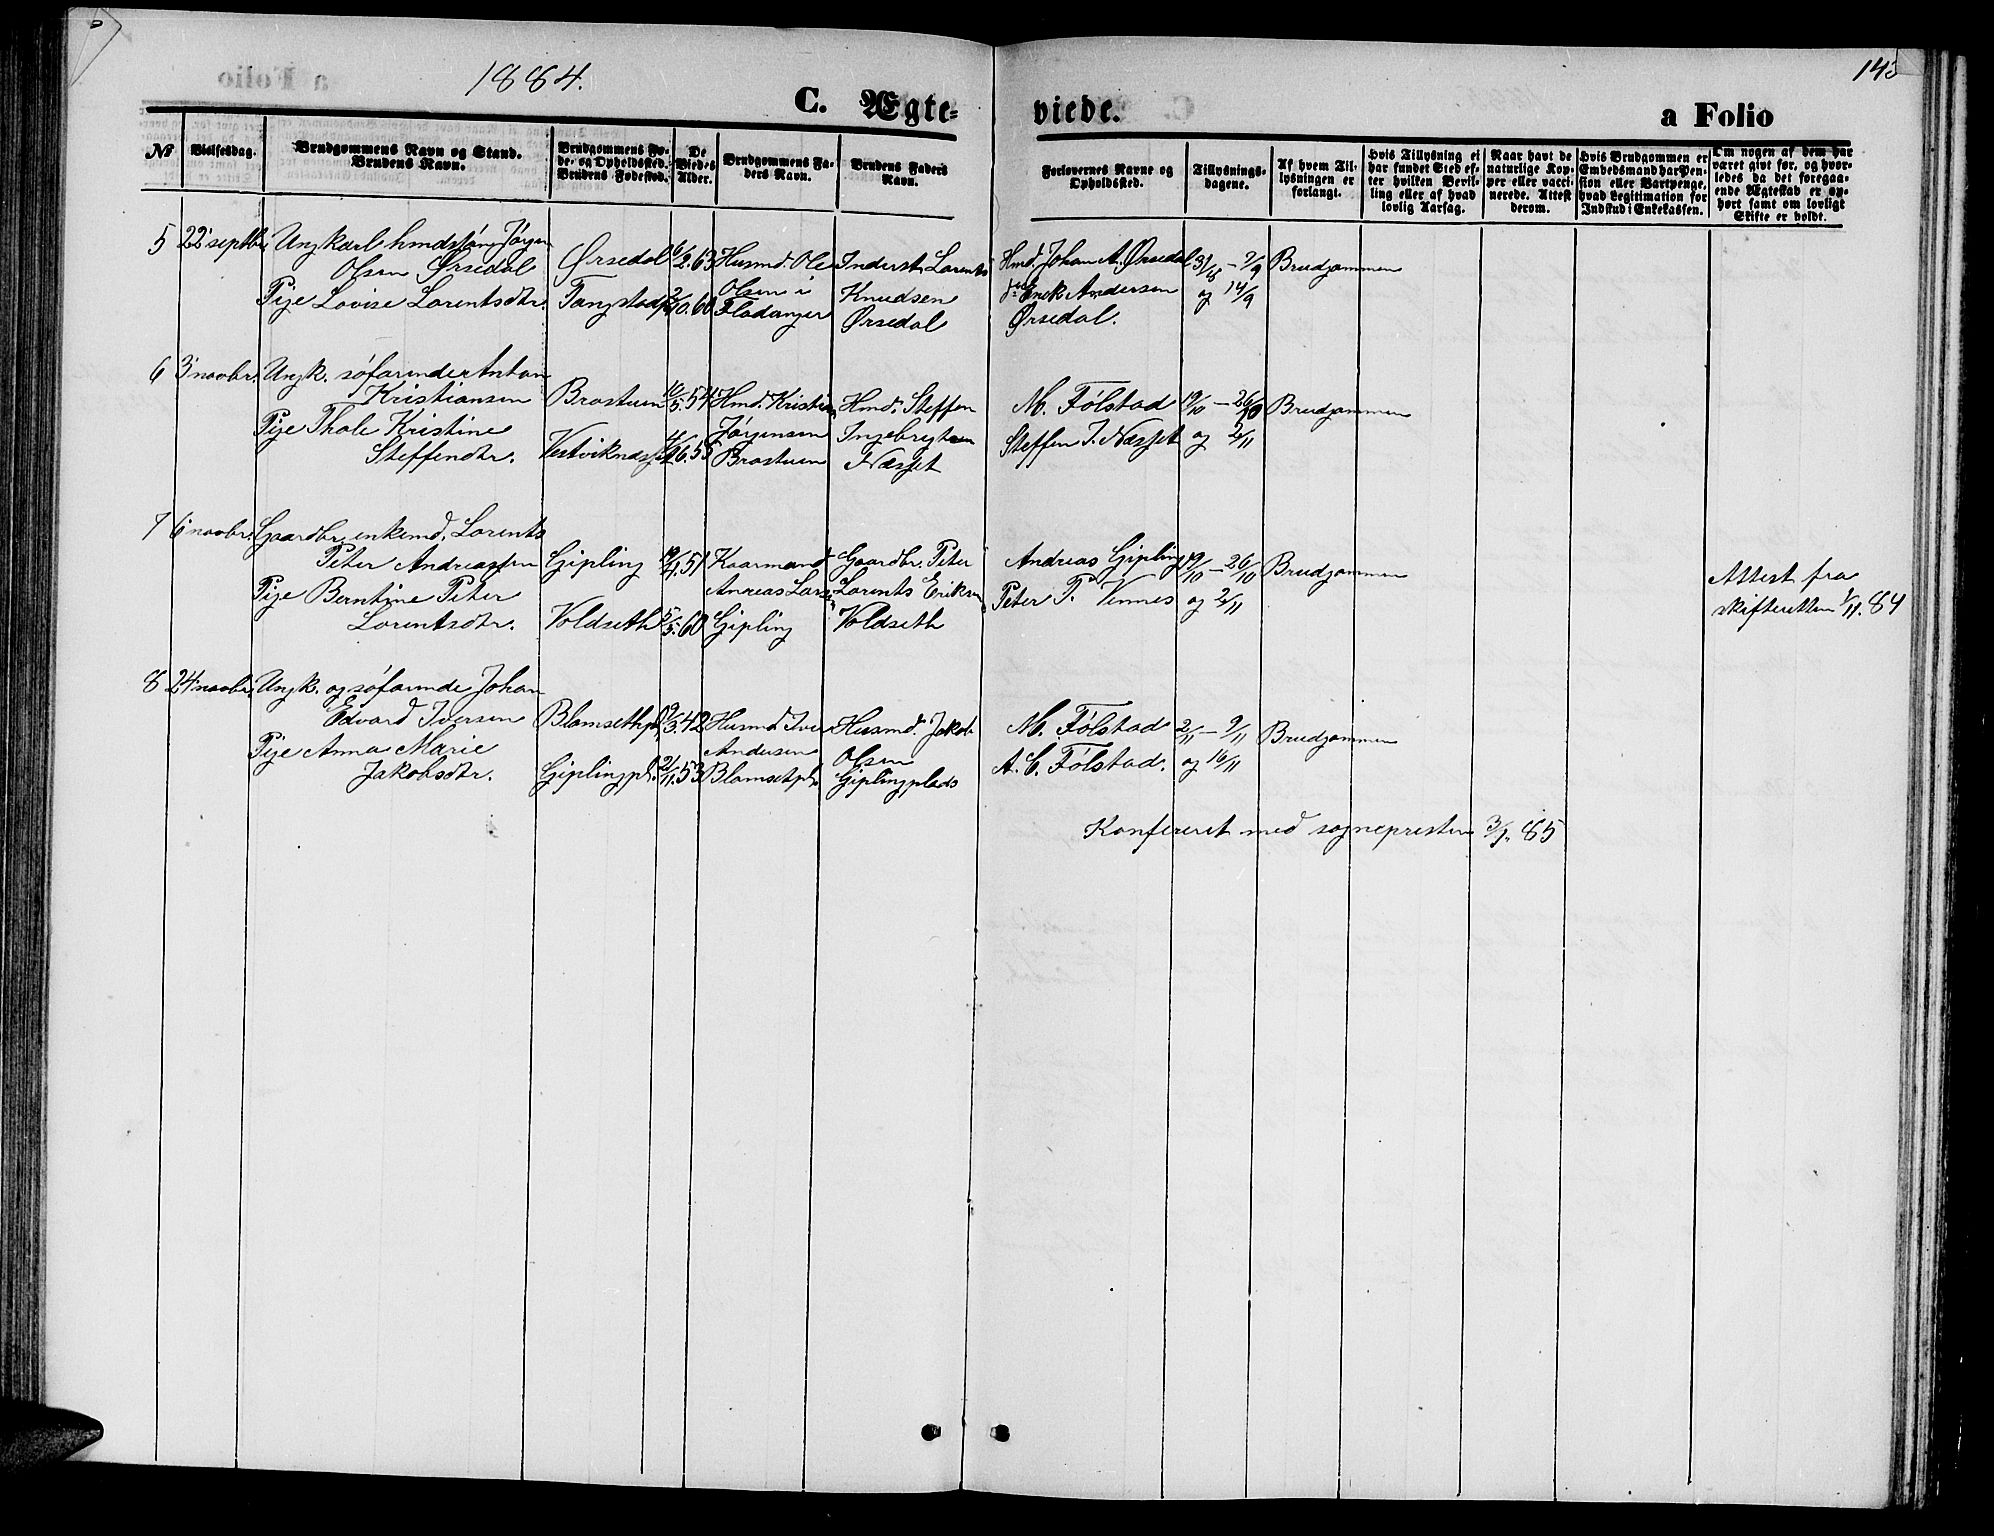 1884.
143
C. Ægte-
viede.
a Folio
№
Vielsesdag.
Brudgommens Navn og Stand.
Brudens Navn.
Brudgommens Fø-
de- og Opholdssted.
Brudens Fødested.
De
Viedes
Alder.
Brudgommens Fa-
ders Navn.
Brudens Faders
Navn.
Forlovernes Navne og
Opholdssted.
Tillysnings-
dagene.
Af hvem Til-
lysningen er
forlangt.
Hvis Tillysning ei
har fundet Sted ef-
ter hvilken Bevil-
ling eller af hvad
lovlig Aarsag.
Naar havt de
naturlige Kop-
per eller vacci-
nerede. Attest
derom.
Hvis Brudgommen er
Embedsmand har Pen-
sion eller Vartpenge,
hvad Legitimation for
Indskud i Enkekassen.
Om nogen af dem har
været givt før, og hvor-
ledes da det foregaa-
ende Ægteskab er op-
hørt samt om lovligt
Skifte er holdt.
5 22 septbr. Ungkarl hmdssøn Jørgen
Olsen Ørsedal
Pige Lovise Lorentsdtr.
Ørsedal
6/2.63
Husmd. Ole
Olsen i
Fladanger
Inderst Lorents
Knudsen
Ørsedal
Hmd. Johan A. Ørsedal
Enok Andersen
Ørsedal.
31/8 – 7/9
og 14/9
Brudgommen
6 3 novbr. Ungk. søfarinde Anton
Kristiansen
Pige Thale Kristine
Steffendtr.
Brastuen
10/5.54
Hmd. Kristian
Jørgensen
Brastuen
Hmd. Steffen
Ingebrigtsen
Næsset
M. Følstad
Steffen I. Næsset
19/10 – 26/10
og 2/11
Brudgommen
7 6 novbr. Gaardbr. enkemd. Lorents
Peter Andreassen
Pige Berntine Peter
Lorentsdtr.
Gipling
Voldseth
5/5.60
Kaarmand
Anreas Lars
Gipling
Gaardbr. Peter
Lorents Eriksen
Voldseth
Andreas Gipling
Peter P. Vennes
19/10 – 26/10
og 2/11
Brudgommen
Attest fra
skifteretten 1/11.84
8 24 novbr. Ungk. og søfarende Johan
Edvard Iversen
Pige Anna Marie
Jakobsdtr.
Blamsethpl.
Giplingpl.
9/3.42
2/11.53
Husmd. Iver
Andersen
Blamsetpl.
Husmd. Jakob
Olsen
Giplingplads
M. Følstad
A. C. Følstad.
2/11 – 9/11
og 16/11
Brudgommen
Konfereret med sognepresten 3/1.85